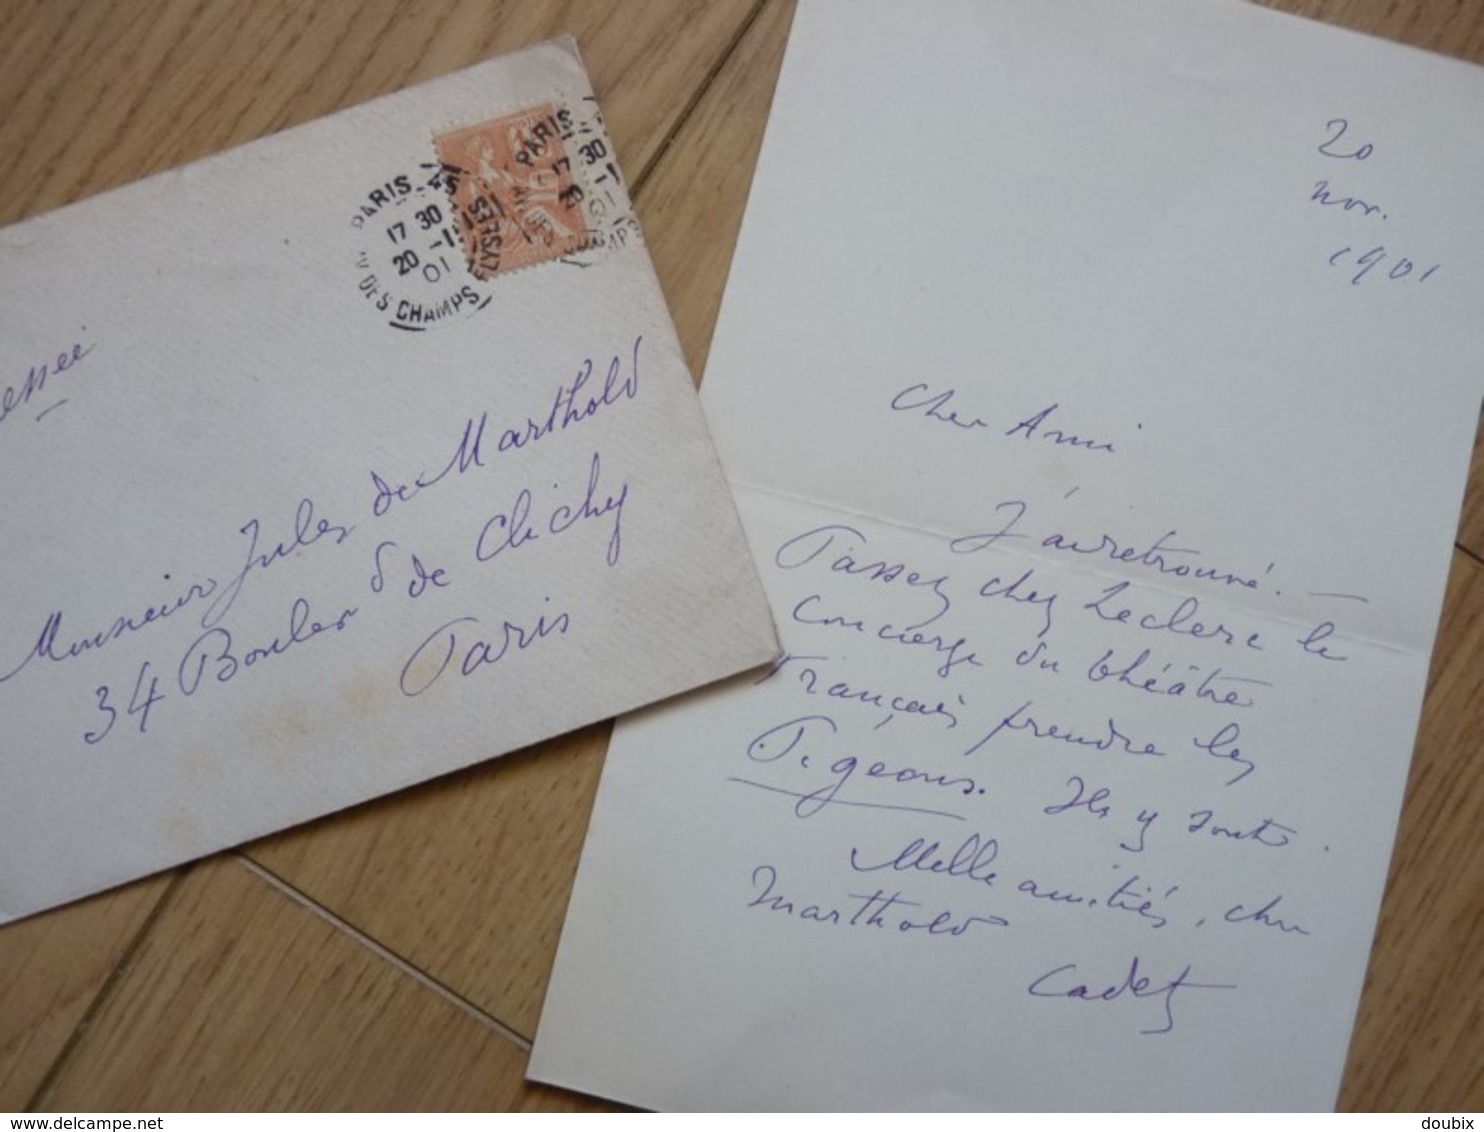 PARIS
17 30
20 -11
01
AV DES CHAMPS ELYSEES
PARIS
17 30
20 -11
01
15
Monsieur Jules de Marthold
34 Boulevd de Clichy
Paris
20
nov.
1901
Cher Ami
J'ai retrouvé. —
Passez chez Leclerc le
concierge du théâtre
Français prendre les
Pigeons. Ils y sont.
Mille amitiés, cher
Marthold
Cadet
www.delcampe.net
doubix